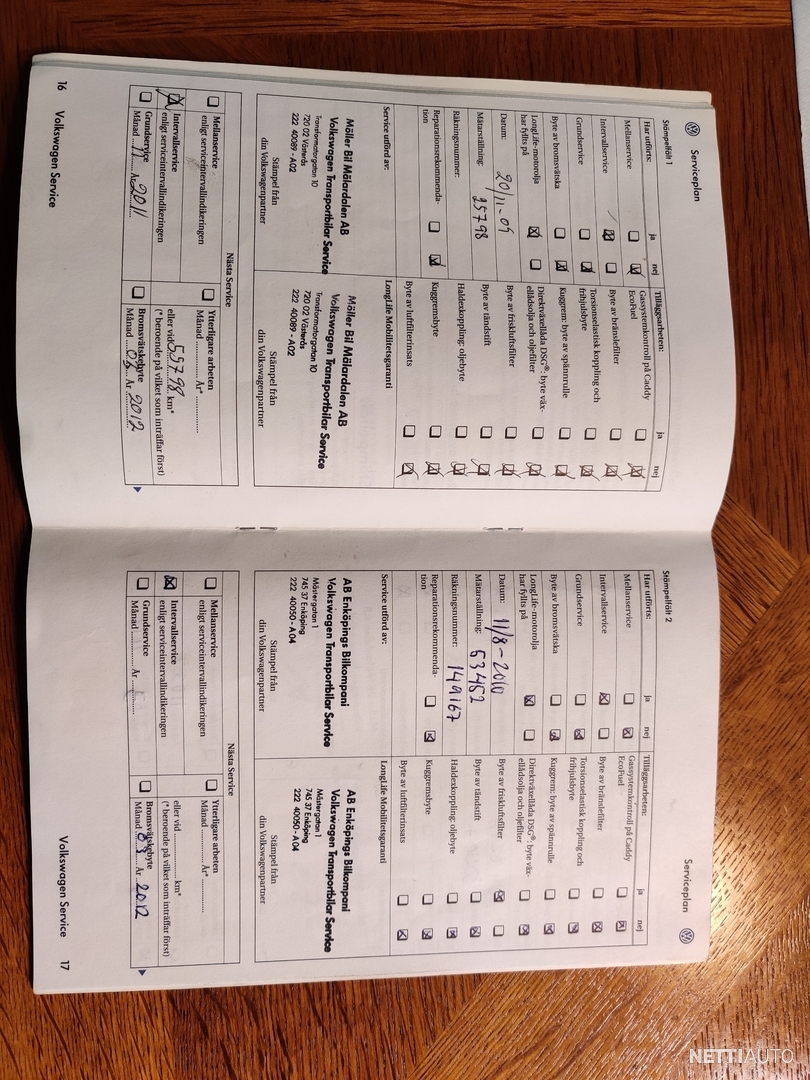 Serviceplan
Stämpelfält 1
Har utförts: ja nej
Mellanservice
Intervallservice
Grundservice
Byte av bromsvätska
LongLife-motorolja
har fyllts på
Datum: 20/11-09
Mätarställning: 25798
Räkningsnummer:
Reparationsrekommenda-
tion
Service utförd av:
Möller Bil Mälardalen AB
Volkswagen Transportbilar Service
Transformatorgatan 10
720 02 Västerås
222 40089 - A02
Stämpel från
din Volkswagenpartner
Tilläggsarbeten: ja nej
Gassystemkontroll på Caddy
EcoFuel
Byte av bränslefilter
Torsionselastisk koppling och
frihjulsbyte
Kuggrem: byte av spännrulle
Direktväxellåda DSG®: byte väx-
ellådsolja och oljefilter
Byte av friskluftsfilter
Byte av tändstift
Haldexkoppling: oljebyte
Kuggremsbyte
Byte av luftfilterinsats
LongLife Mobilitetsgaranti
Möller Bil Mälardalen AB
Volkswagen Transportbilar Service
Transformatorgatan 10
720 02 Västerås
222 40089 - A02
Stämpel från
din Volkswagenpartner
Nästa Service
Mellanservice
enligt serviceintervallindikeringen
Intervallservice
enligt serviceintervallindikeringen
Grundservice
Månad ..11.. År 2011
Ytterligare arbeten
Månad ............ År* ............
eller vid 55798 km*
(* beroende på vilket som inträffar först)
Bromsvätskebyte
Månad ..09.. År 2012
16 Volkswagen Service
Serviceplan
Stämpelfält 2
Har utförts: ja nej
Mellanservice
Intervallservice
Grundservice
Byte av bromsvätska
LongLife-motorolja
har fyllts på
Datum: 11/8-2010
Mätarställning: 53452
Räkningsnummer: 149167
Reparationsrekommenda-
tion
Service utförd av:
AB Enköpings Bilkompani
Volkswagen Transportbilar Service
Mästergatan 1
745 37 Enköping
222 40050 - A04
Stämpel från
din Volkswagenpartner
Tilläggsarbeten: ja nej
Gassystemkontroll på Caddy
EcoFuel
Byte av bränslefilter
Torsionselastisk koppling och
frihjulsbyte
Kuggrem: byte av spännrulle
Direktväxellåda DSG®: byte väx-
ellådsolja och oljefilter
Byte av friskluftsfilter
Byte av tändstift
Haldexkoppling: oljebyte
Kuggremsbyte
Byte av luftfilterinsats
LongLife Mobilitetsgaranti
AB Enköpings Bilkompani
Volkswagen Transportbilar Service
Mästergatan 1
745 37 Enköping
222 40050 - A04
Stämpel från
din Volkswagenpartner
Nästa Service
Mellanservice
enligt serviceintervallindikeringen
Intervallservice
enligt serviceintervallindikeringen
Grundservice
Månad ............ År ............
Ytterligare arbeten
Månad ............ År* ............
eller vid ............ km*
(* beroende på vilket som inträffar först)
Bromsvätskebyte
Månad ...... År 2012
Volkswagen Service 17
NETTIAUTO